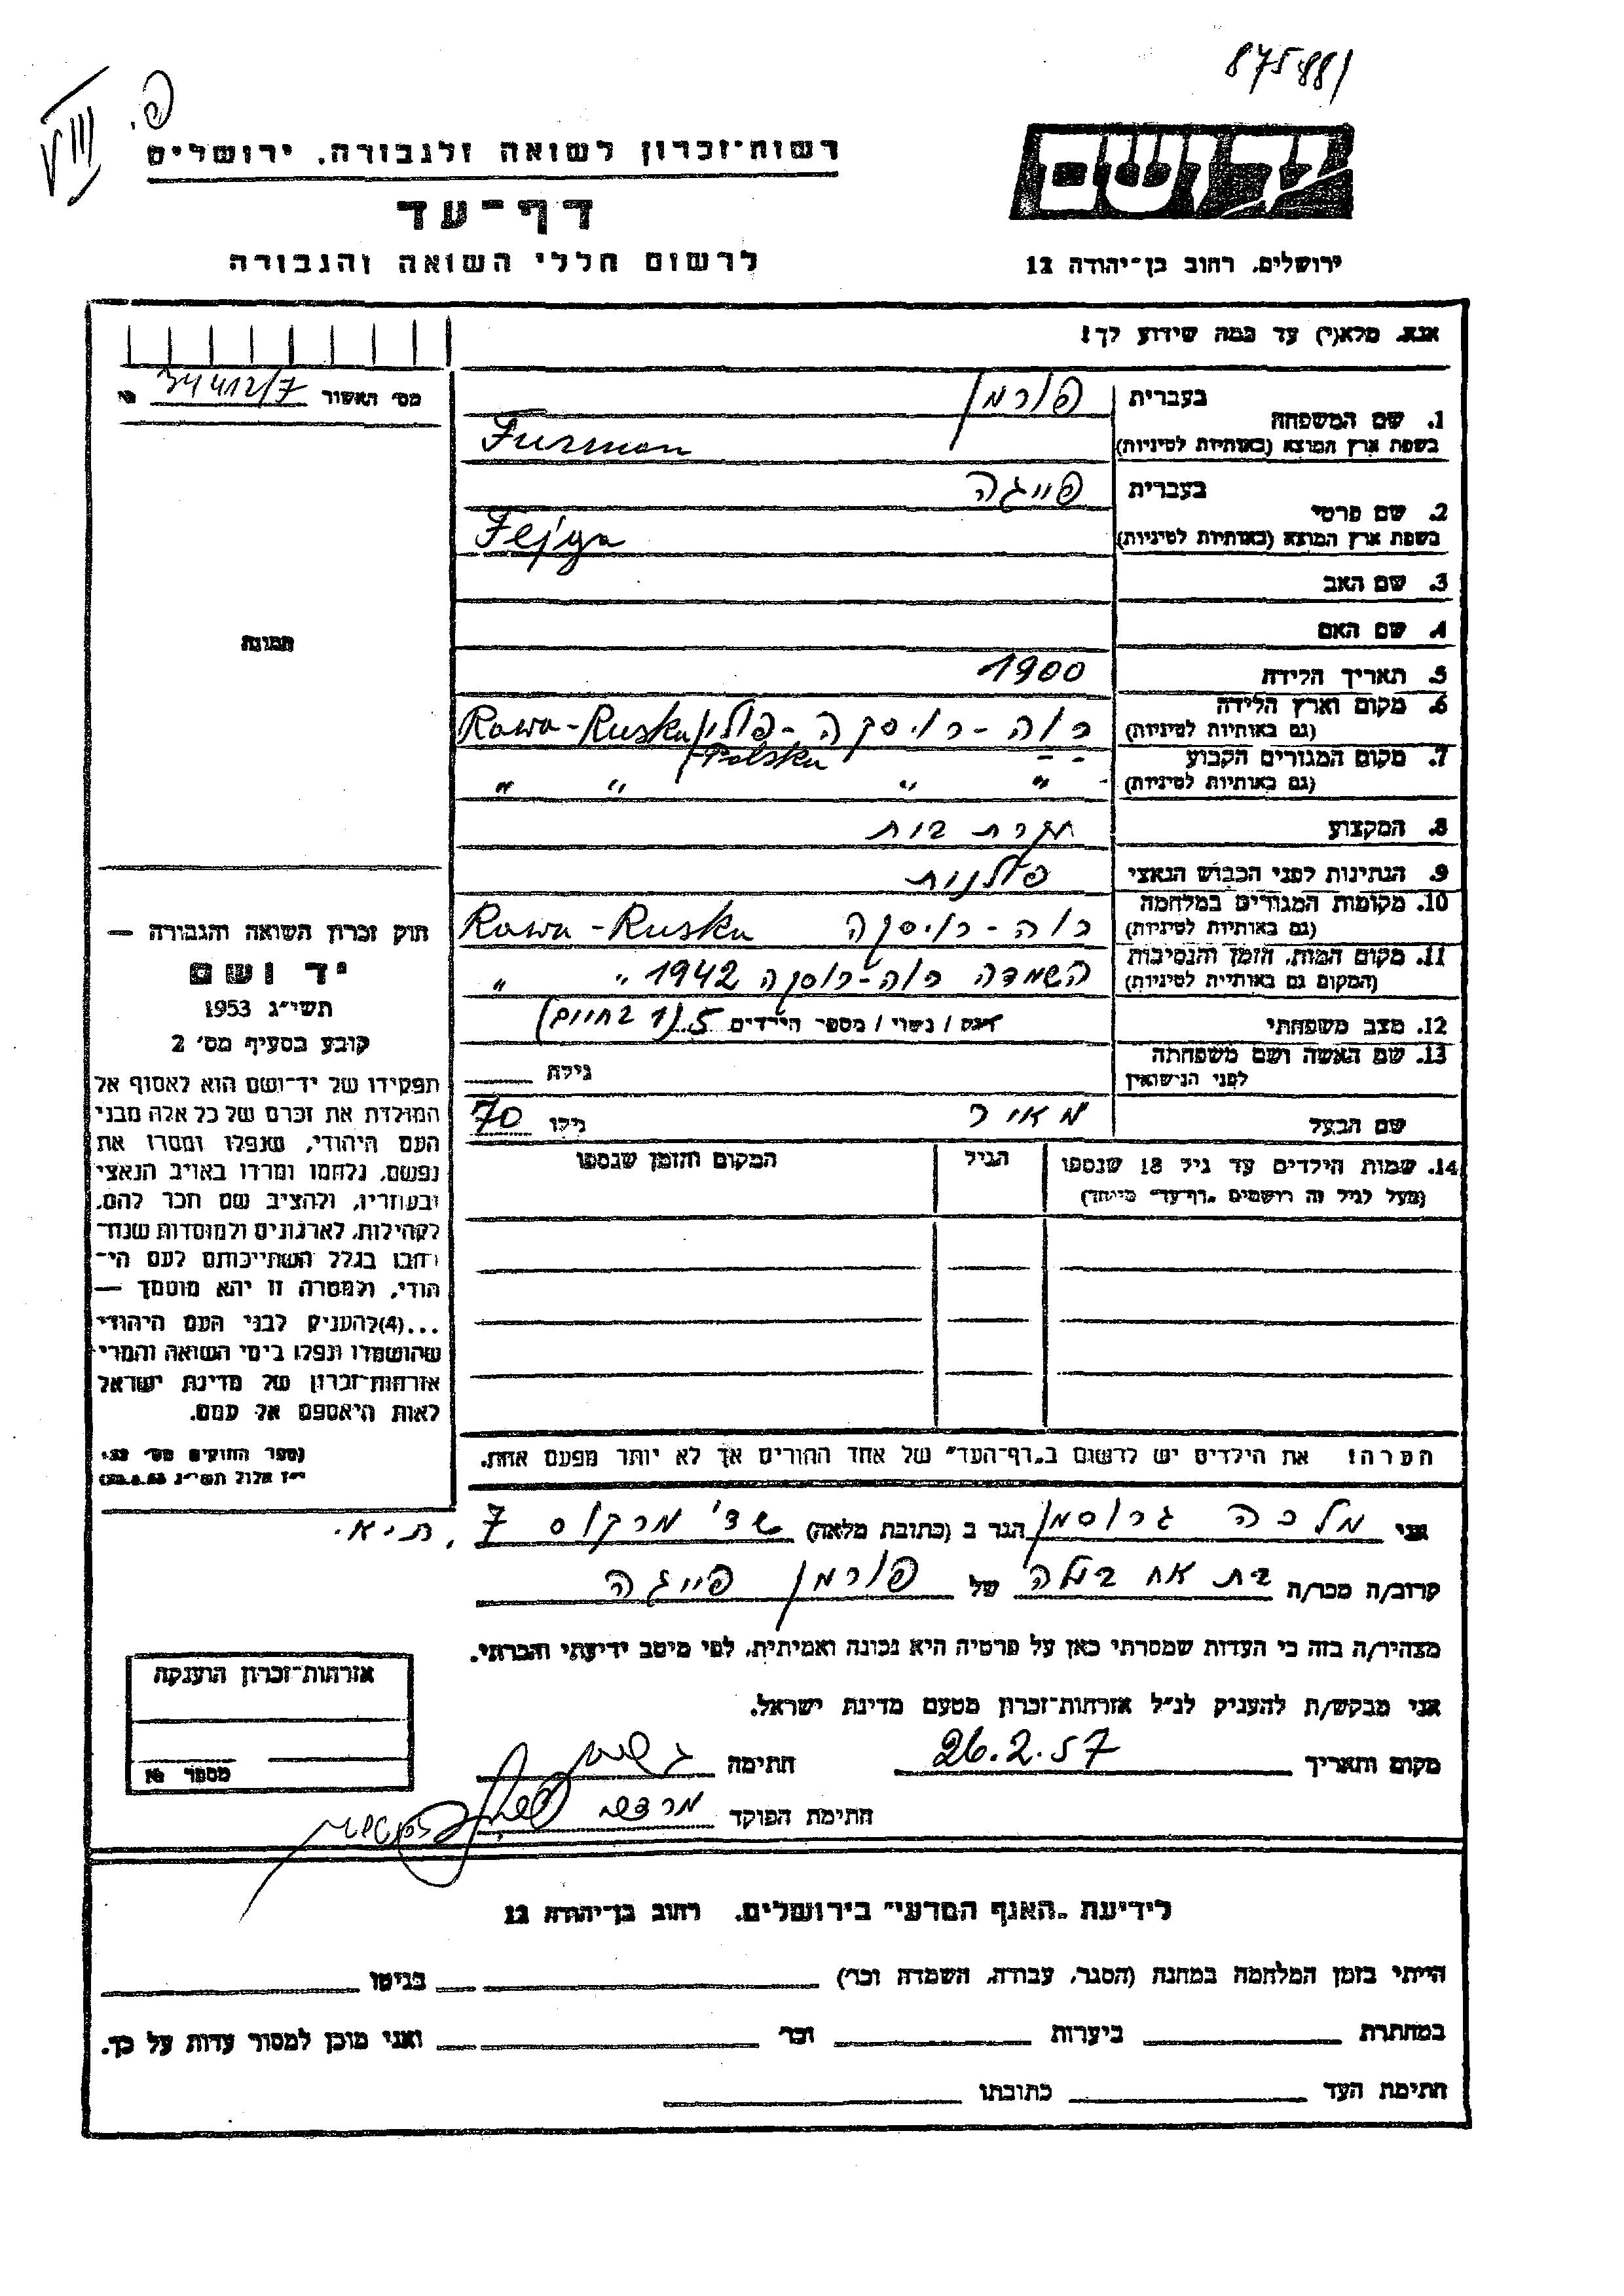 875881
VIII
פ.
רשות־זכרון לשואה ולגבורה. ירושלים
יד ושם
דף־עד
לרשום חללי השואה והגבורה
ירושלים. רחוב בן־יהודה 12
אנא. מלא(י) עד כמה שידוע לך!
מס׳ האשור 34412/7 №
בעברית פורמן
1. שם המשפחה
בשפת ארץ המוצא (באותיות לטיניות) Furman
בעברית פייגה
2. שם פרטי
בשפת ארץ המוצא (באותיות לטיניות) Fejga
3. שם האב
4. שם האם
תמונה
5. תאריך הלידה 1900
6. מקום וארץ הלידה
(גם באותיות לטיניות) רוה-רוסקה-פולין Rawa-Ruska
Polska
7. מקום המגורים הקבוע
(גם באותיות לטיניות) " " " "
8. המקצוע עקרת בית
9. הנתינות לפני הכבוש הנאצי פולנית
10. מקומות המגורים במלחמה
(גם באותיות לטיניות) רוה-רוסקה Rawa-Ruska
11. מקום המות. הזמן והנסיבות
(המקום גם באותיות לטיניות) השמדה רוה-רוסקה 1942 " "
12. מצב משפחתי רווק / נשוי / מספר הילדים 5 (1 בחיים)
13. שם האשה ושם משפחתה
לפני הנישואין גילה
שם הבעל מאיר גילו 70
14. שמות הילדים עד גיל 18 שנספו הגיל המקום והזמן שנספו
(מעל לגיל זה רושמים „דף־עד״ מיוחד)
הערה! את הילדים יש לרשום ב„דף־העד״ של אחד ההורים אך לא יותר מפעם אחת.
חוק זכרון השואה והגבורה —
יד ושם
תשי״ג 1953
קובע בסעיף מס׳ 2
תפקידו של יד־ושם הוא לאסוף אל
המולדת את זכרם של כל אלה מבני
העם היהודי, שנפלו ומסרו את
נפשם. נלחמו ומרדו באויב הנאצי
ובעוזריו, ולהציב שם וזכר להם,
לקהילות, לארגונים ולמוסדות שנח־
רבו בגלל השתייכותם לעם הי־
הודי, ולמטרה זו יהא מוסמך —
...(4)להעניק לבני העם היהודי
שהושמדו ונפלו בימי השואה והמרי
אזרחות־זכרון של מדינת ישראל
לאות היאספם אל עמם.
(ספר החוקים מס׳ 132.
י״ז אלול תשי״ג 28.8.53)
אני מלכה גרוסמן הגר ב (כתובת מלאה) שד׳ מרקוס 7, ת״א.
קרוב/ה מכר/ה בת אח בעלה של פורמן פייגה
מצהיר/ה בזה כי העדות שמסרתי כאן על פרטיה היא נכונה ואמיתית, לפי מיטב ידיעתי והכרתי.
אני מבקש/ת להעניק לנ״ל אזרחות־זכרון מטעם מדינת ישראל.
מקום ותאריך 26.2.57 חתימה
חתימת הפוקד
אזרחות־זכרון הוענקה
מספר №
לידיעת „האגף המדעי״ בירושלים. רחוב בן־יהודה 12
הייתי בזמן המלחמה במחנה (הסגר, עבודה, השמדה וכו׳) בגיטו
במחתרת ביערות וכו׳ ואני מוכן למסור עדות על כך.
חתימת העד כתובתו